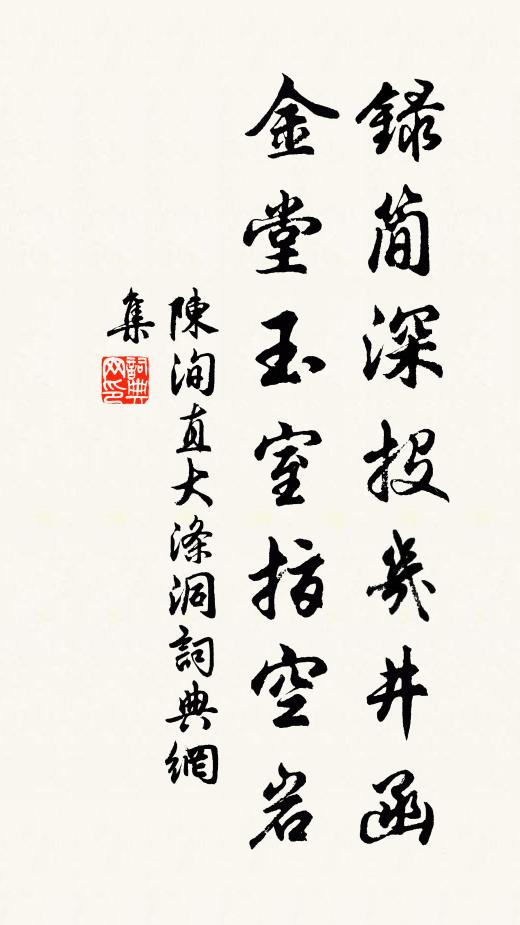 錄簡深投幾井函
金堂玉室指空岩
陳洵直大滌洞詞典網
集
詞典網印